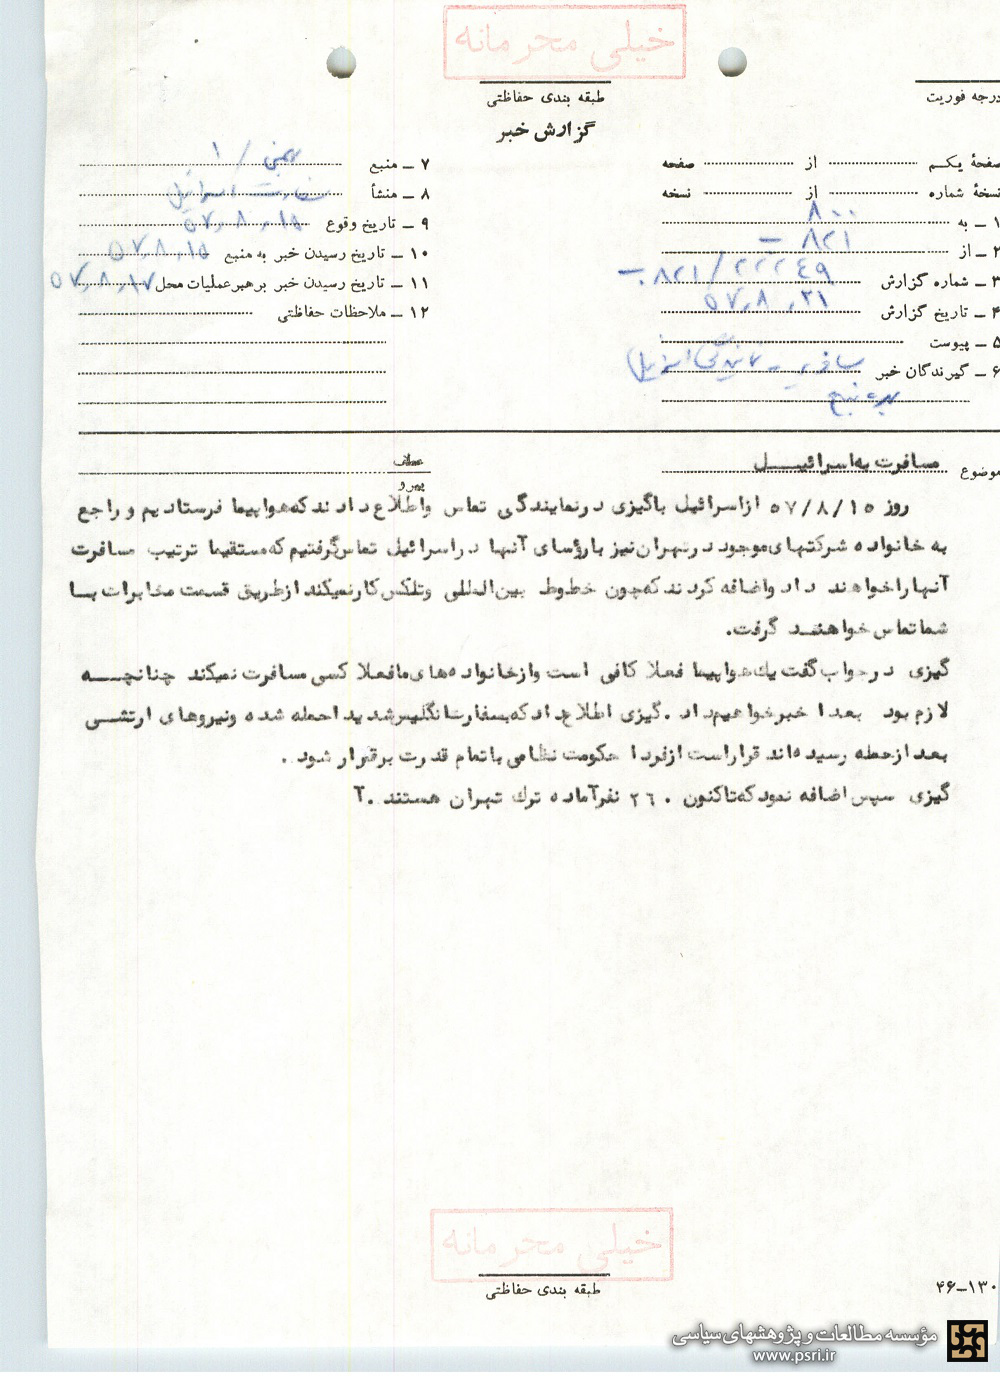 خیلی محرمانه
طبقه بندی حفاظتی
درجه فوریت
گزارش خبر
صفحهٔ یکم از صفحه
نسخهٔ شماره از نسخه
۱ – به ۸۰۰
۲ – از ۸۲۱
۳ – شماره گزارش ۸۲۱/۲۲۲۴۹
۴ – تاریخ گزارش ۵۷,۸,۲۱
۵ – پیوست
۶ – گیرندگان خبر
۷ – منبع بهمنی / ۱
۸ – منشأ سفارت اسرائیل
۹ – تاریخ وقوع ۵۷,۸,۱۵
۱۰ – تاریخ رسیدن خبر به منبع ۵۷,۸,۱۵
۱۱ – تاریخ رسیدن خبر برهبرعملیات محل ۵۷,۸,۱۷
۱۲ – ملاحظات حفاظتی
موضوع مسافرت به اسرائیل
عطف
پیرو
روز ۵۷/۸/۱۵ ازاسرائیل باگیزی درنمایندگی تماس واطلاع دادند که هواپیما فرستادیم و راجع
به خانواده شرکتهای موجود درتهران نیز بارؤسای آنها دراسرائیل تماس گرفتیم که مستقیما ترتیب مسافرت
آنها راخواهند داد واضافه کردند که چون خطوط بین المللی وتلکس کارنمیکند ازطریق قسمت مخابرات بـا
شما تماس خواهند گرفت.
گیزی درجواب گفت یک هواپیما فعلا کافی است وازخانواده های ما فعلا کسی مسافرت نمیکند چنانچـه
لازم بود بعدا خبرخواهیم داد .گیزی اطلاع داد که بسفارت انگلیس شدیدا حمله شده ونیروهای ارتشـی
بعد ازحمله رسیده اند قراراست ازفردا حکومت نظامی باتمام قدرت برقرار شود .
گیزی سپس اضافه نمود که تاکنون ۲۶۰ نفرآماده ترک تهران هستند .آ
خیلی محرمانه
طبقه بندی حفاظتی
۴۶–۱۳۰
مؤسسه مطالعات و پژوهشهای سیاسی
www.psri.ir